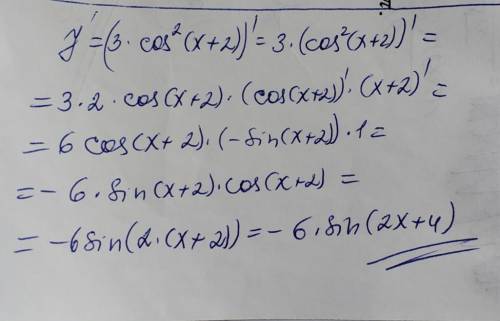 y' = (3 · cos²(x+2))' = 3 · (cos²(x+2))' =
= 3 · 2 · cos(x+2) · (cos(x+2))' · (x+2)' =
= 6 cos(x+2) · (-sin(x+2)) · 1 =
= - 6 · sin(x+2) · cos(x+2) =
= -6 sin(2 · (x+2)) = - 6 · sin(2x+4)